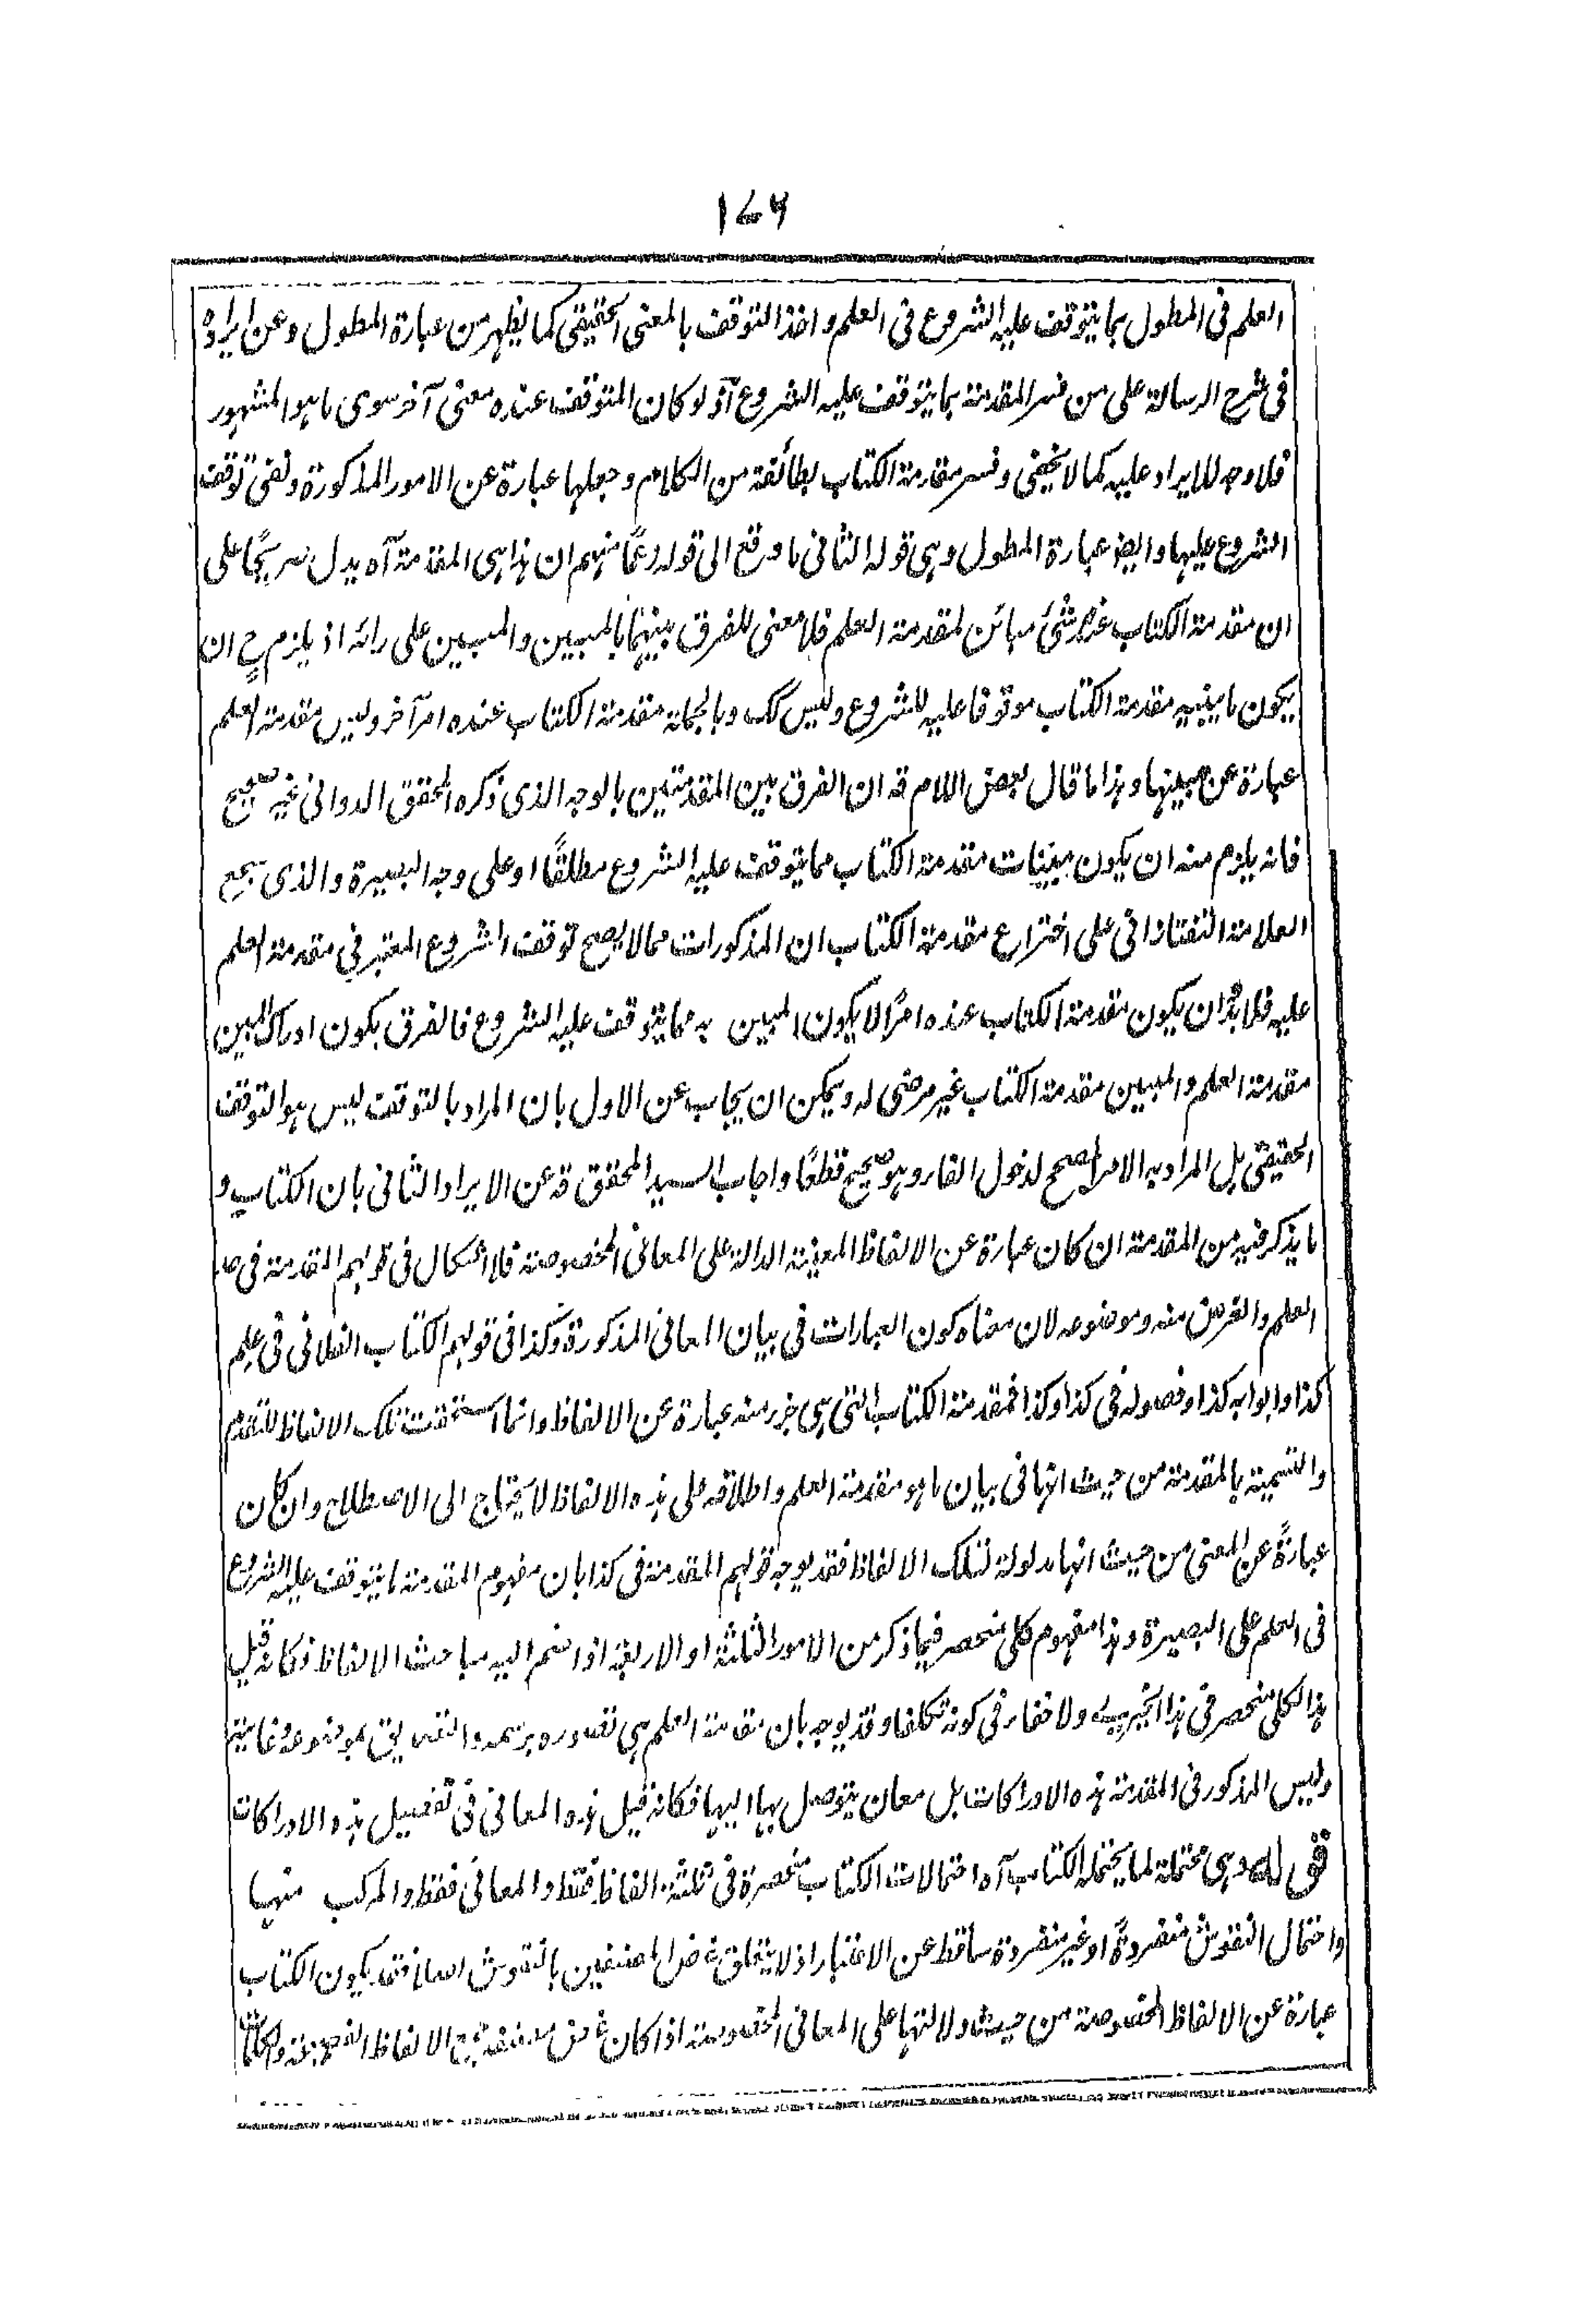 ١٧٦
العلم فى المطول بما يتوقف عليه الشروع فى العلم و اخذ التوقف بالمعنى الحقيقى كما يظهر من عبارة المطول و عن ايراده
فى شرح الرسالة على من فسر المقدمة بما يتوقف عليه الشروع آذ لو كان المتوقف عنده معنى آخر سوى ما هو المشهور
فلا وجه للايراد عليه كما لا يخفى و فسر مقدمة الكتاب بطائفة من الكلام و جعلها عبارة عن الامور المذكورة و نفى توقف
الشروع عليها و ايضا عبارة المطول و هى قوله الثانى ما وقع الى قوله زعمًا منهم ان هذا هى المقدمة آه يدل صريحًا على
ان مقدمة الكتاب عنده شئ مبائن لمقدمة العلم فلا معنى للفرق بينهما بالمبين و المبين على رائه اذ يلزم ح ان
يكون ما يبنيه مقدمة الكتاب موقوفا عليه للشروع و ليس كك و بالجملة مقدمة الكتاب عنده امر آخر و ليس مقدمة العلم
عبارة عن مبينها و هذا ما قال بعض الاعلام قه ان الفرق بين المقدمتين بالوجه الذى ذكره المحقق الدوانى غير صحيح
فانه يلزم منه ان يكون مبينات مقدمة الكتاب مما يتوقف عليه الشروع مطلقًا او على وجه البصيرة و الذى يجمع
العلامة التفتازانى على اختراع مقدمة الكتاب ان المذكورات مما لا يصح توقف الشروع المعتبر فى مقدمة العلم
عليه فلا بد ان يكون مقدمة الكتاب عنده امرًا لا يكون المبين به مما يتوقف عليه الشروع فالفرق بكون ادراك المبين
مقدمة العلم و المبين مقدمة الكتاب غير مرضى له و يمكن ان يجاب عن الاول بان المراد بالتوقف ليس هو التوقف
الحقيقى بل المراد به الامر المصحح لدخول الفاء و هو صحيح قطعًا و اجاب السيد المحقق قه عن الايراد الثانى بان الكتاب و
ما يذكر فيه من المقدمة ان كان عبارة عن الالفاظ المعينة الدالة على المعانى المخصوصة فلا اشكال فى قولهم المقدمة فى حد
العلم و الغرض منه و موضوعه لان معناه كون العبارات فى بيان المعانى المذكورة و كذا فى قولهم الكتاب الفلانى فى علم
كذا و ابوابه كذا و فصوله فى كذا و كذا فمقدمة الكتاب التى هى جزء منه عبارة عن الالفاظ و انما استحقت تلك الالفاظ للتقدم
و التسمية بالمقدمة من حيث انها فى بيان ما هو مقدمة العلم و اطلاقه على هذه الالفاظ لا يحتاج الى الاصطلاح و ان كان
عبارةً عن المعنى من حيث انها مدلولة لتلك الالفاظ فقد يوجه قولهم المقدمة فى كذا بان مفهوم المقدمة ما يتوقف عليه الشروع
فى العلم على البصيرة و هذا مفهوم كلى منحصر فيما ذكر من الامور الثلثة او الاربعة اذا ضم اليه مباحث الالفاظ فكانه قيل
هذا الكلى منحصر فى هذا الجزئى و لا خفاء فى كونه تكلفا و قد يوجه بان مقدمة العلم هى تصوره برسمه و التصديق بموضوعه و غايته
و ليس المذكور فى المقدمة هذه الادراكات بل معان يتوصل بها اليها فكانه قيل هذه المعانى فى تحصيل هذه الادراكات
قوله و هى محتملة لما يحتمله الكتاب آه احتمالات الكتاب منحصرة فى ثلثة الفاظ فقط و المعانى فقط و المركب منها
و احتمال النقوش منفردةً او غير منفردة ساقط عن الاعتبار اذ لا يتعلق غرض المصنفين بالنقوش اصالة فقد يكون الكتاب
عبارة عن الالفاظ المخصوصة من حيث دلالتها على المعانى المخصوصة اذا كان غرض مصنفه الالفاظ